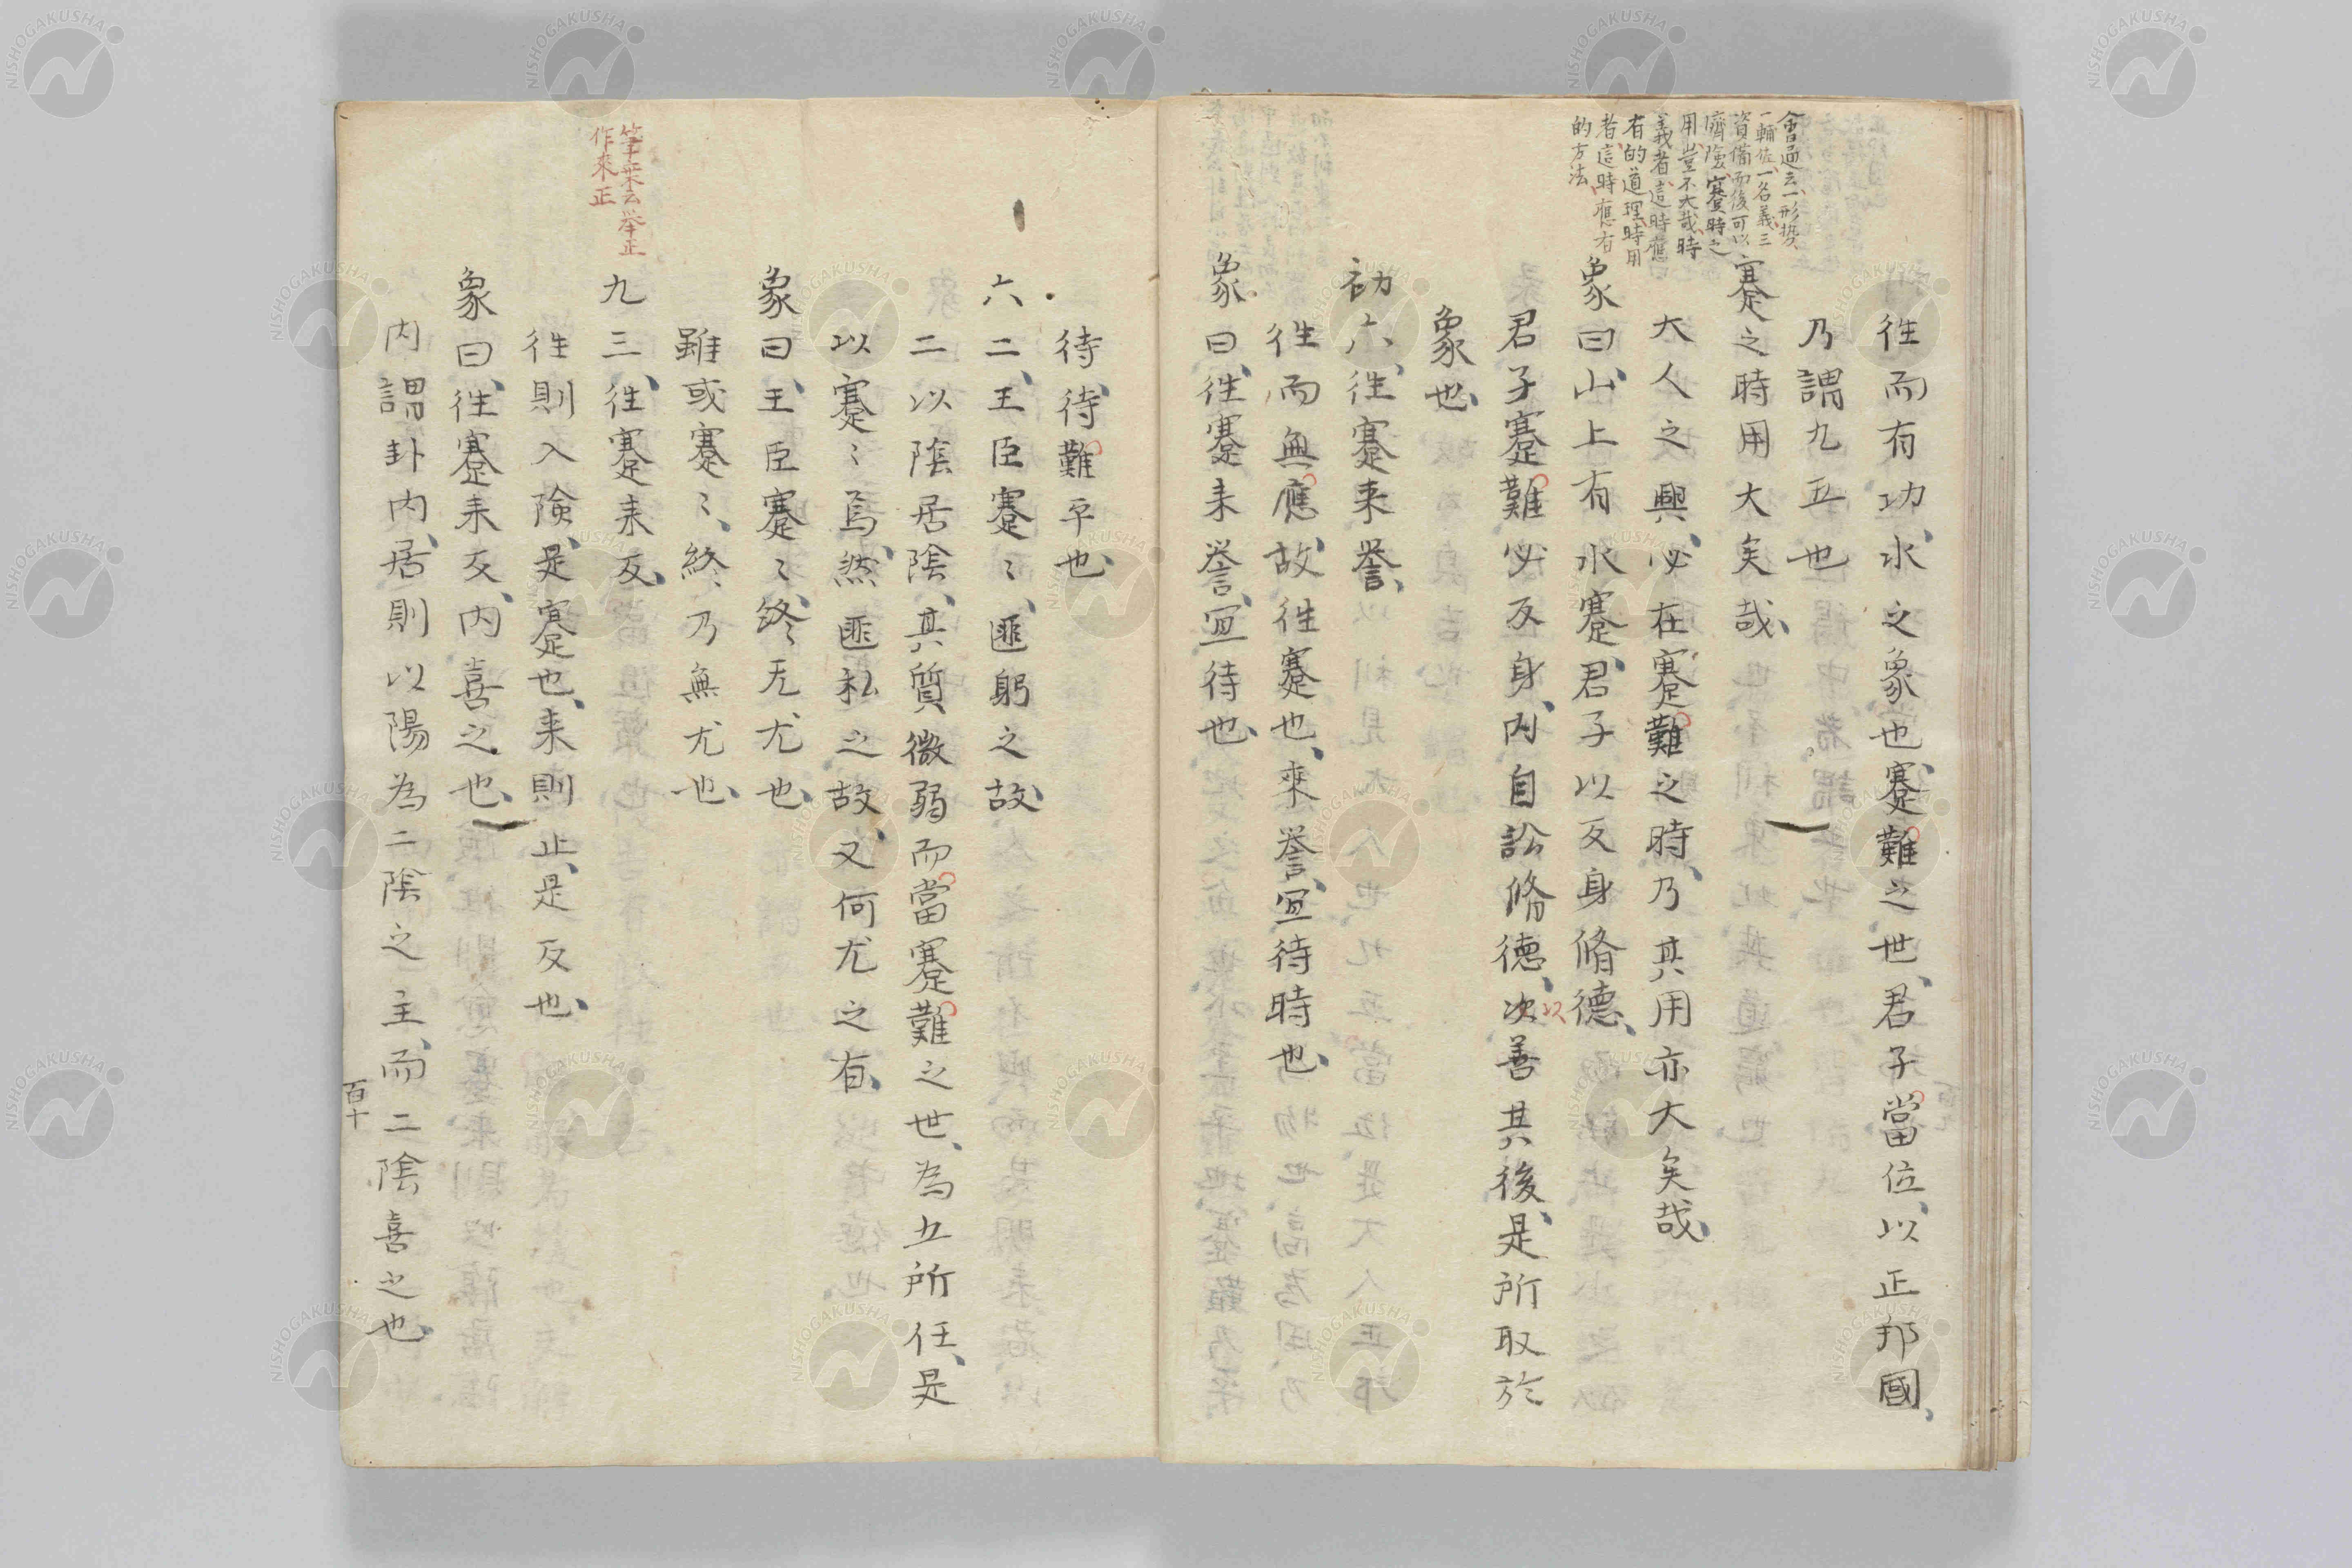 會通云一形勢
一輔佐一名義三
資備而後可以
濟險蹇時之
用豈不大哉時
義者這時應
有的道理時用
者這時應有
的方法
往而有功水之象也蹇難之世君子當位以正邦國
乃謂九五也
蹇之時用大矣哉
大人之興必在蹇難之時乃其用亦大矣哉
象曰山上有水蹇君子以反身脩德
君子蹇難必反身内自訟脩德次善其後是所取於
以
象也
初六往蹇来誉
往而無應故往蹇也来誉宜待時也
象曰往蹇来誉宜待也
待待難平也
六二王臣蹇〻匪躬之故
二以陰居陰其質微弱而當蹇難之世為五所任是
以蹇〻焉然匪私之故又何尤之有
象曰王臣蹇〻終无尤也
雖或蹇〻終乃無尤也
筆乗云举正
作來正
九三往蹇来反
往則入險是蹇也来則止是反也
象曰往蹇来反内喜之也
内謂卦内居則以陽為二陰之主而二陰喜之也
百十
NISHOGAKUSHA